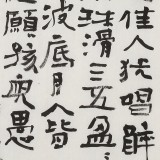 佳人犹唱醉
珠滑三五盈
波底月人皆
願孩兒愚